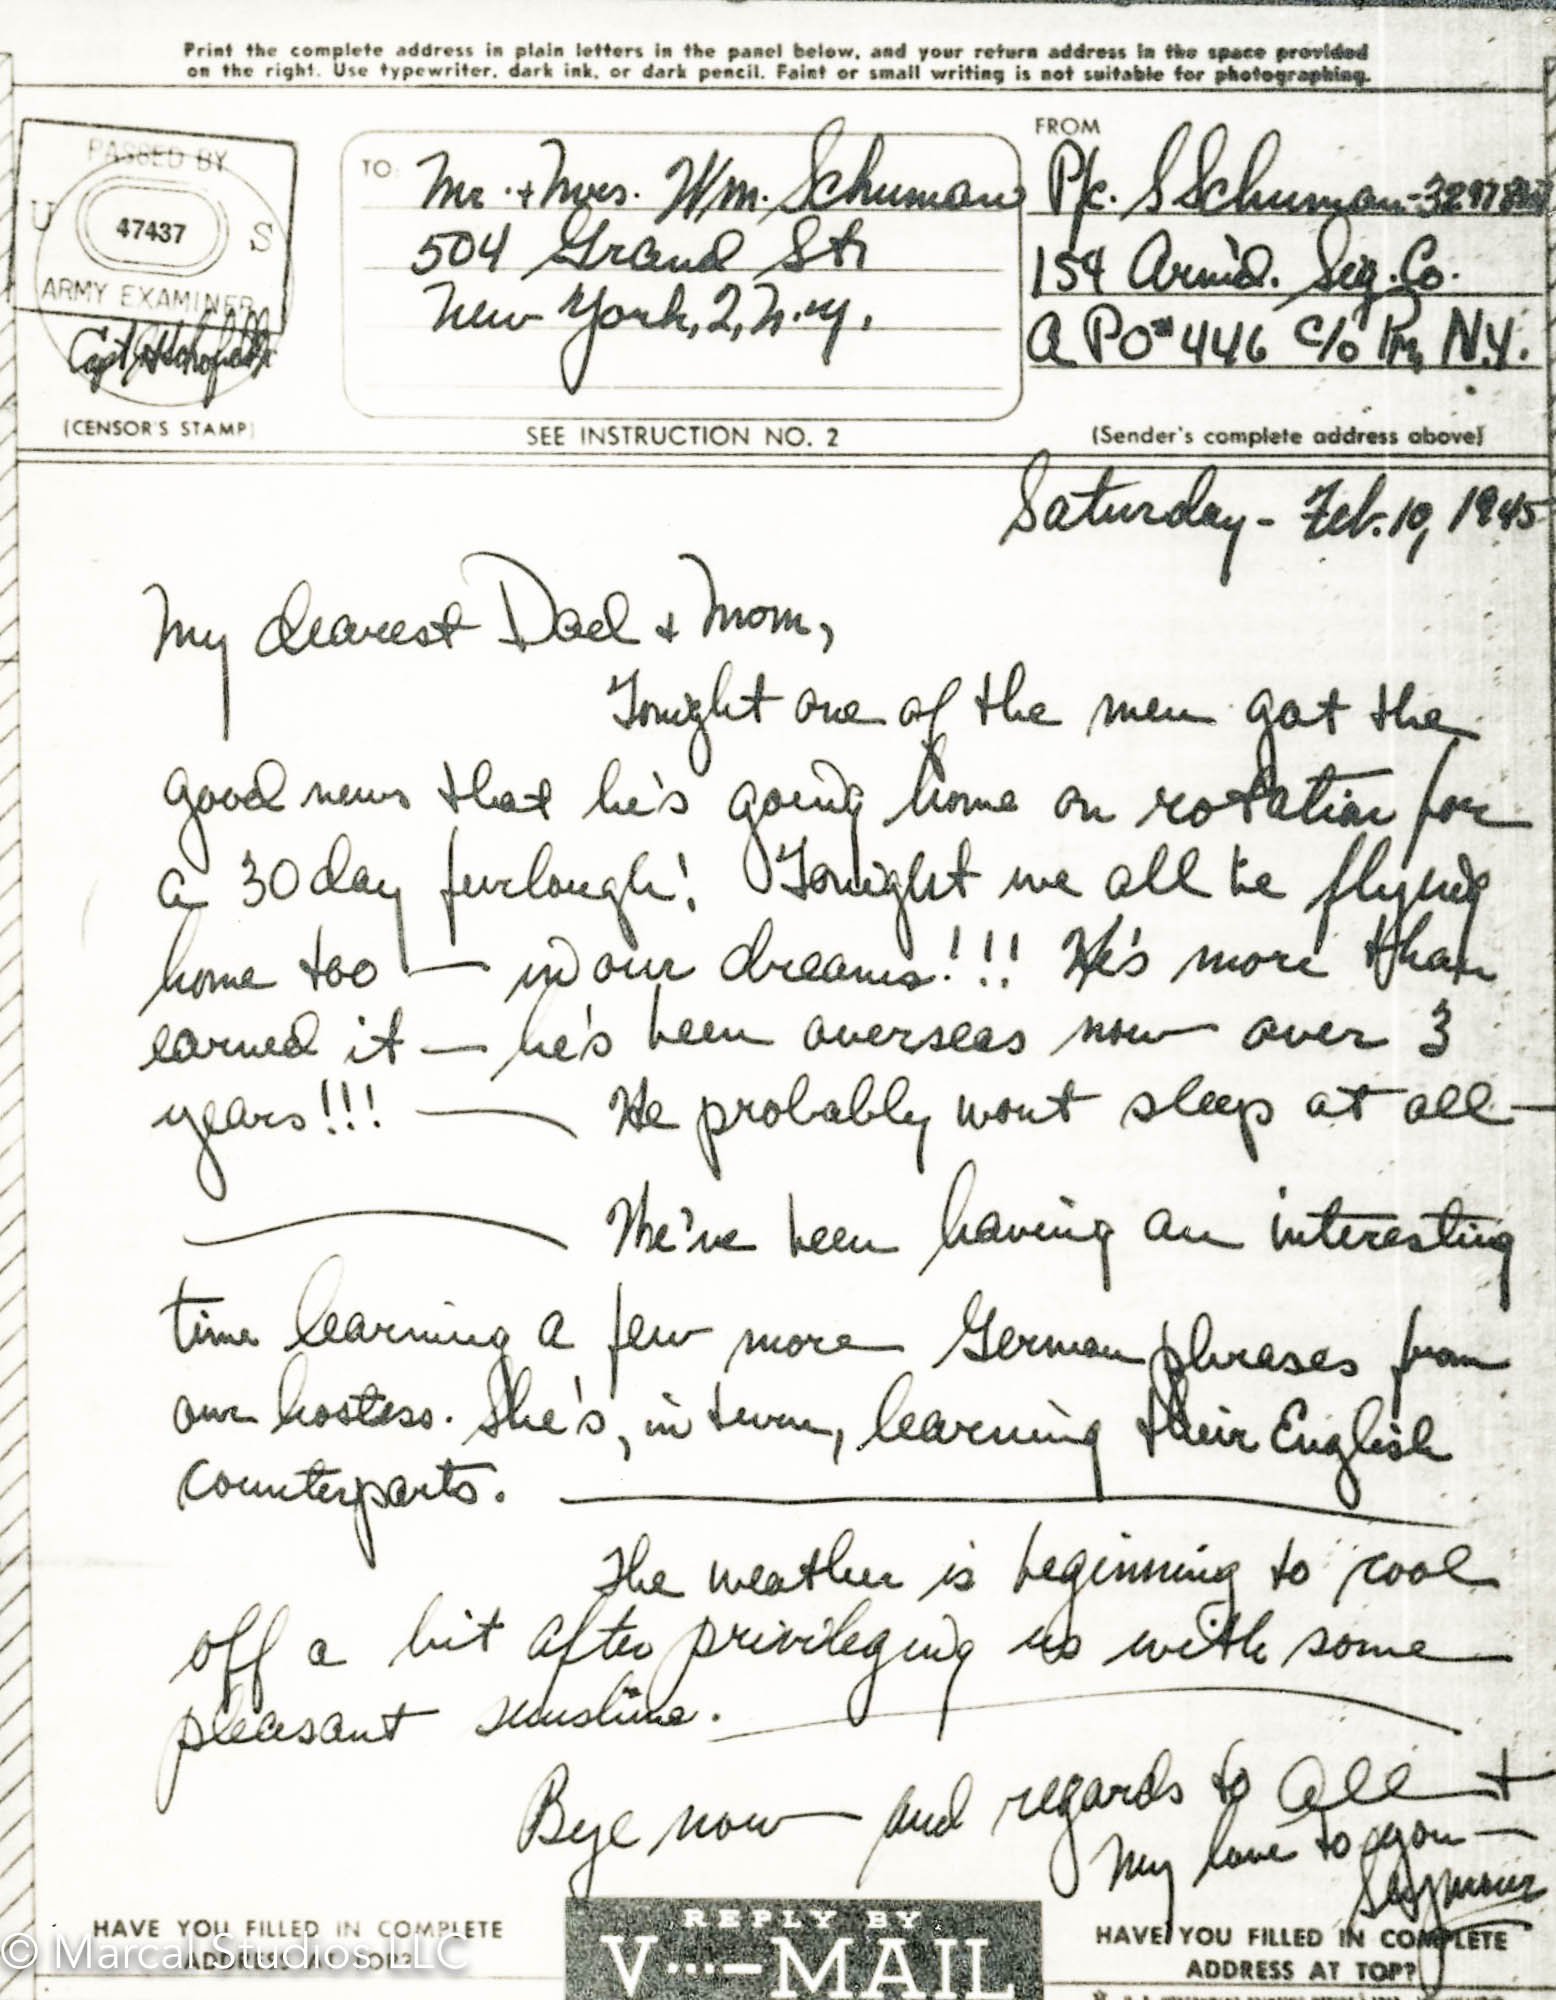 Print the complete address in plain letters in the panel below, and your return address in the space provided
on the right. Use typewriter, dark ink, or dark pencil. Faint or small writing is not suitable for photographing.
PASSED BY
U S
47437
ARMY EXAMINER
Capt
(CENSOR'S STAMP)
TO:
Mr. + Mrs. Wm. Schuman
504 Grand St.
New York, 2, N.Y.
SEE INSTRUCTION NO. 2
FROM
Pfc. S Schuman -
154 Arm'd. Sig. Co.
A PO# 446 c/o Pm, N.Y.
(Sender's complete address above)
Saturday - Feb. 10, 1945
My dearest Dad + Mom,
Tonight one of the men got the
good news that he's going home on rotation for
a 30 day furlough! Tonight we all be flying
home too — in our dreams!!! He's more than
earned it — he's been overseas now over 3
years!!! — He probably wont sleep at all —
We've been having an interesting
time learning a few more German phrases from
our hostess. She's, in turn, learning their English
counterparts.
The weather is beginning to cool
off a bit after privileging us with some
pleasant sunshine.
Bye now — and regards to all +
my love to you —
Seymour
HAVE YOU FILLED IN COMPLETE
ADDRESS AT TOP?
REPLY BY
V···—MAIL
HAVE YOU FILLED IN COMPLETE
ADDRESS AT TOP?
© Marcal Studios LLC